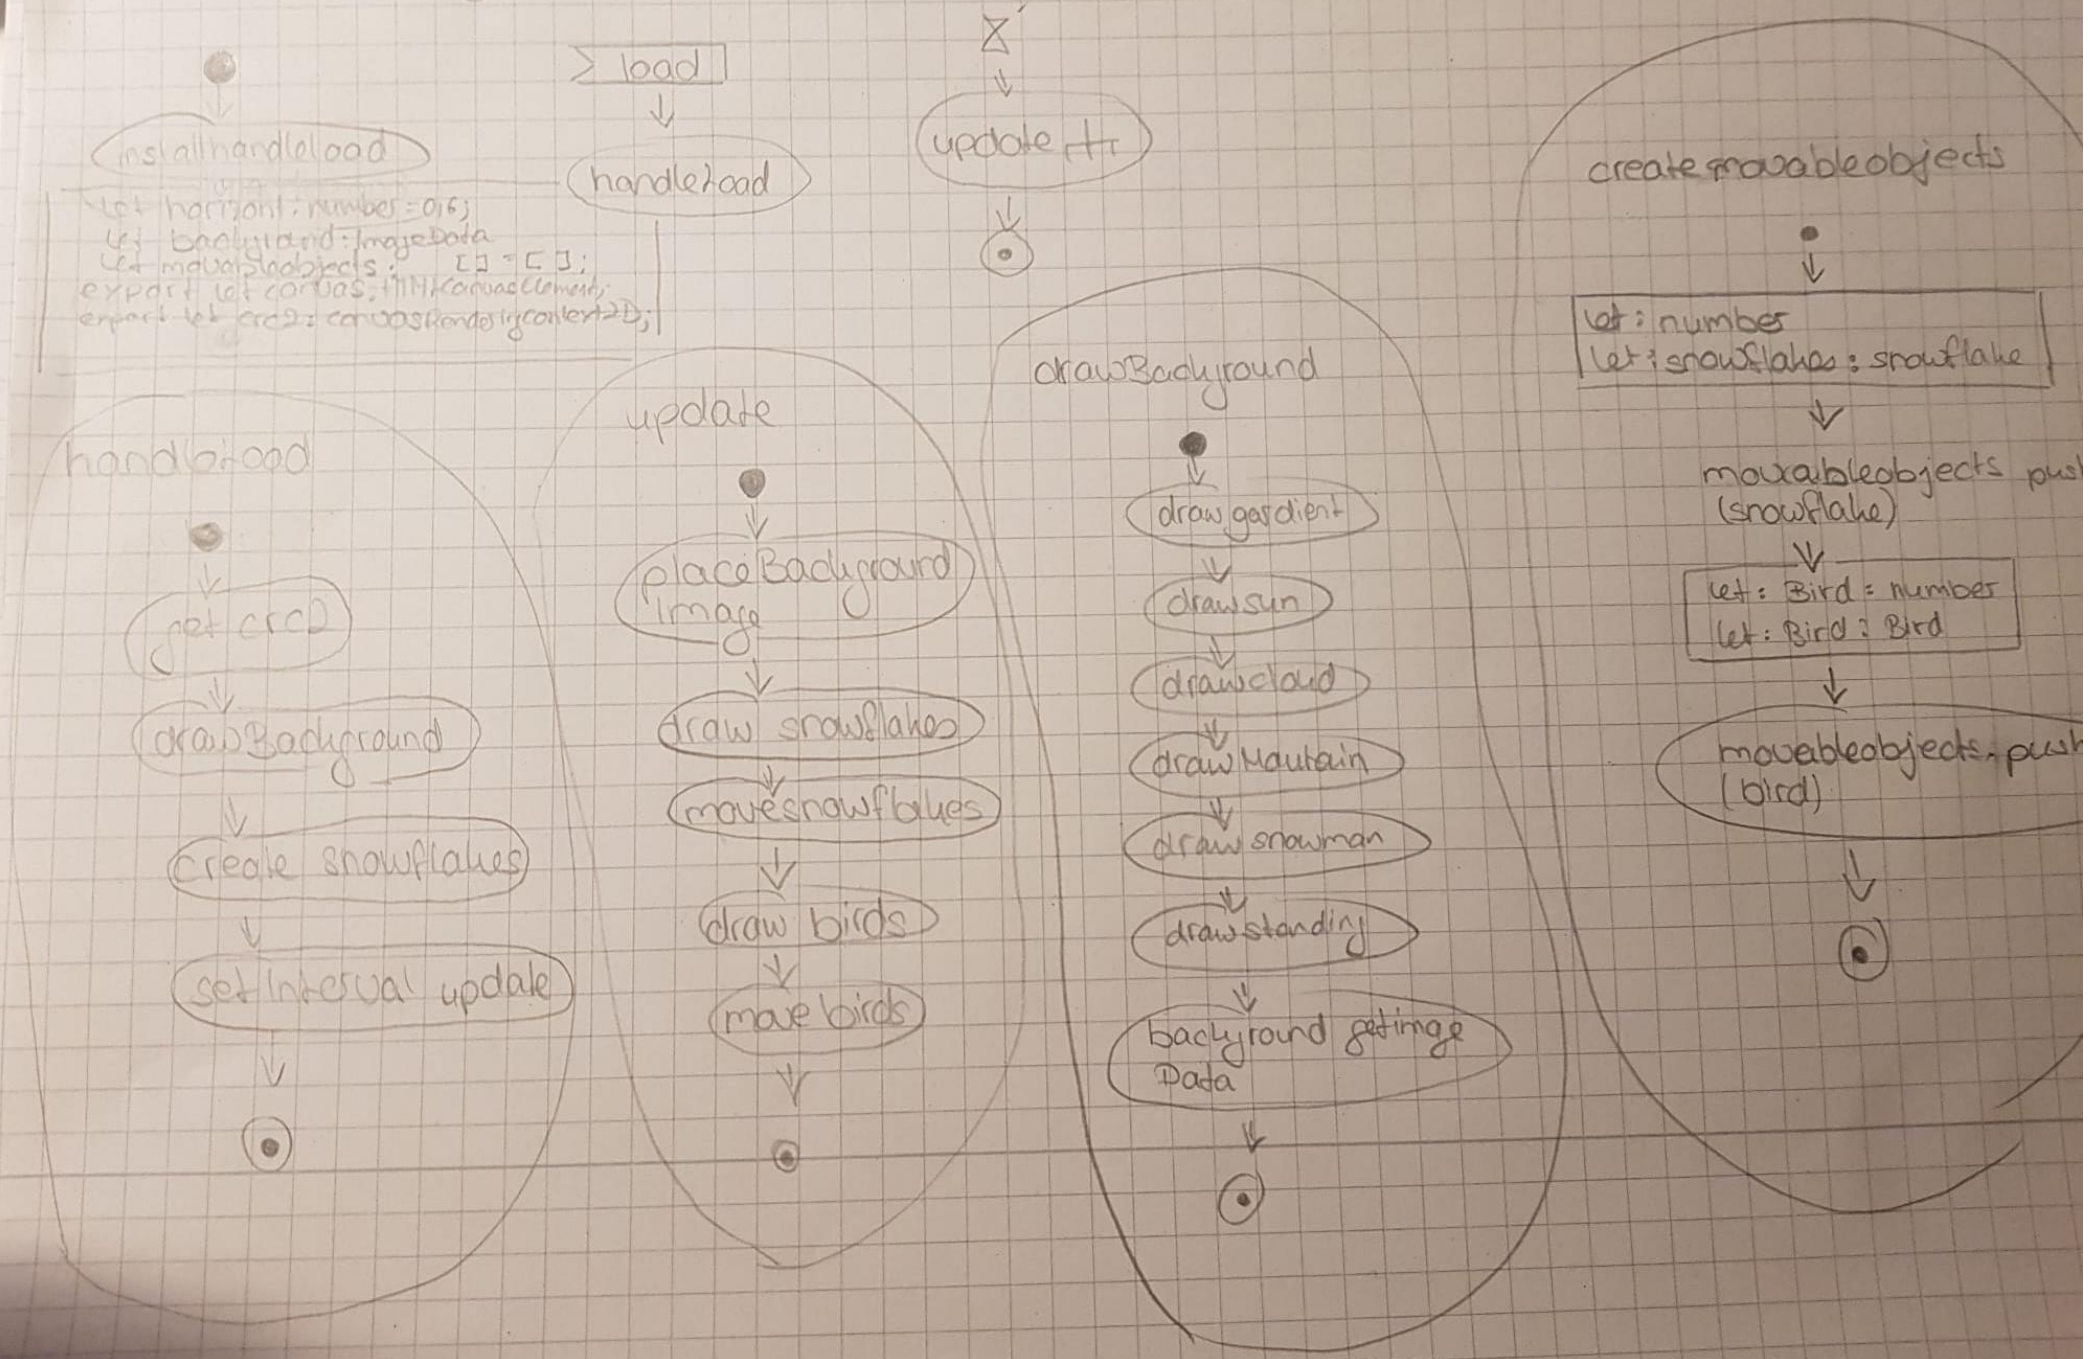 installhandleload
let horizont: number = 0,6;
let background: ImageData
let movableobjects: [] = [];
export let canvas: HTMLCanvasElement;
export let crc2: canvasRenderingcontext2D;
load
handleLoad
update
handleLoad
get crc2
drawBackground
create snowflakes
setInterval update
update
placeBackground
image
draw snowflakes
movesnowflakes
draw birds
move birds
drawBackground
draw gardient
drawsun
drawcloud
drawMountain
drawsnowman
drawstanding
background getimage
Data
createmovableobjects
let: number
let: snowflakes: snowflake
movableobjects pus
(snowflake)
let: Bird: number
let: Bird: Bird
movableobjects.push
(bird)